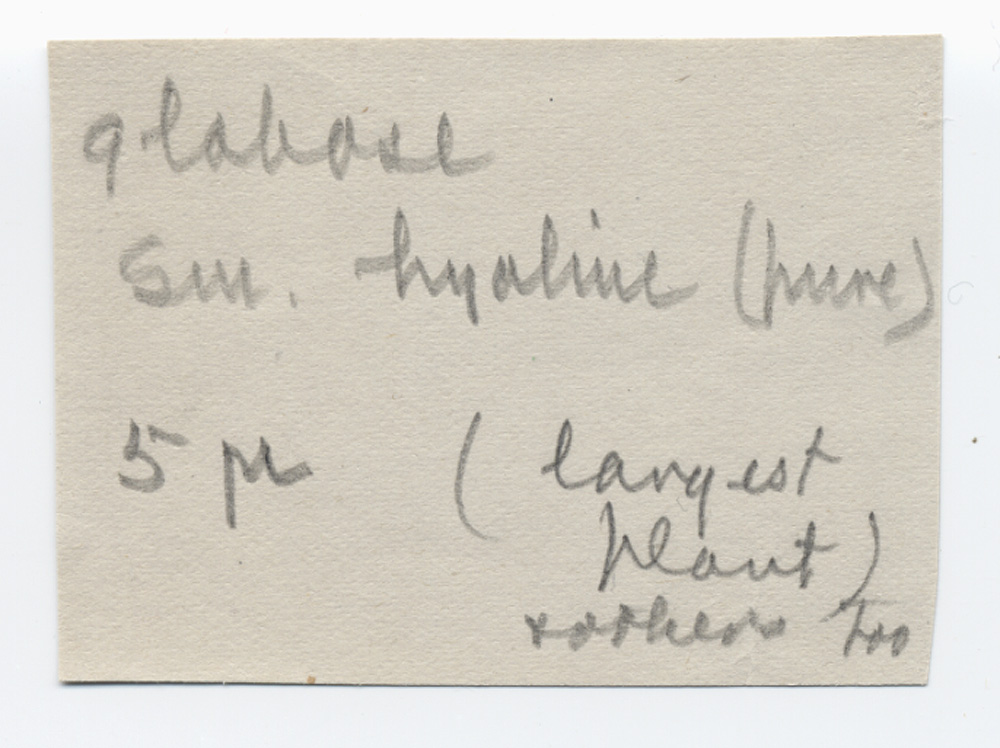 globose
sm. hyaline (pure)
5 µ ( largest
plant )
& others too